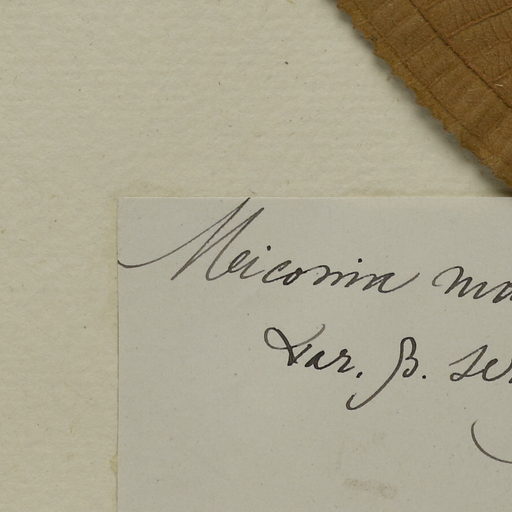 Meiconia ma
Var. β. ser